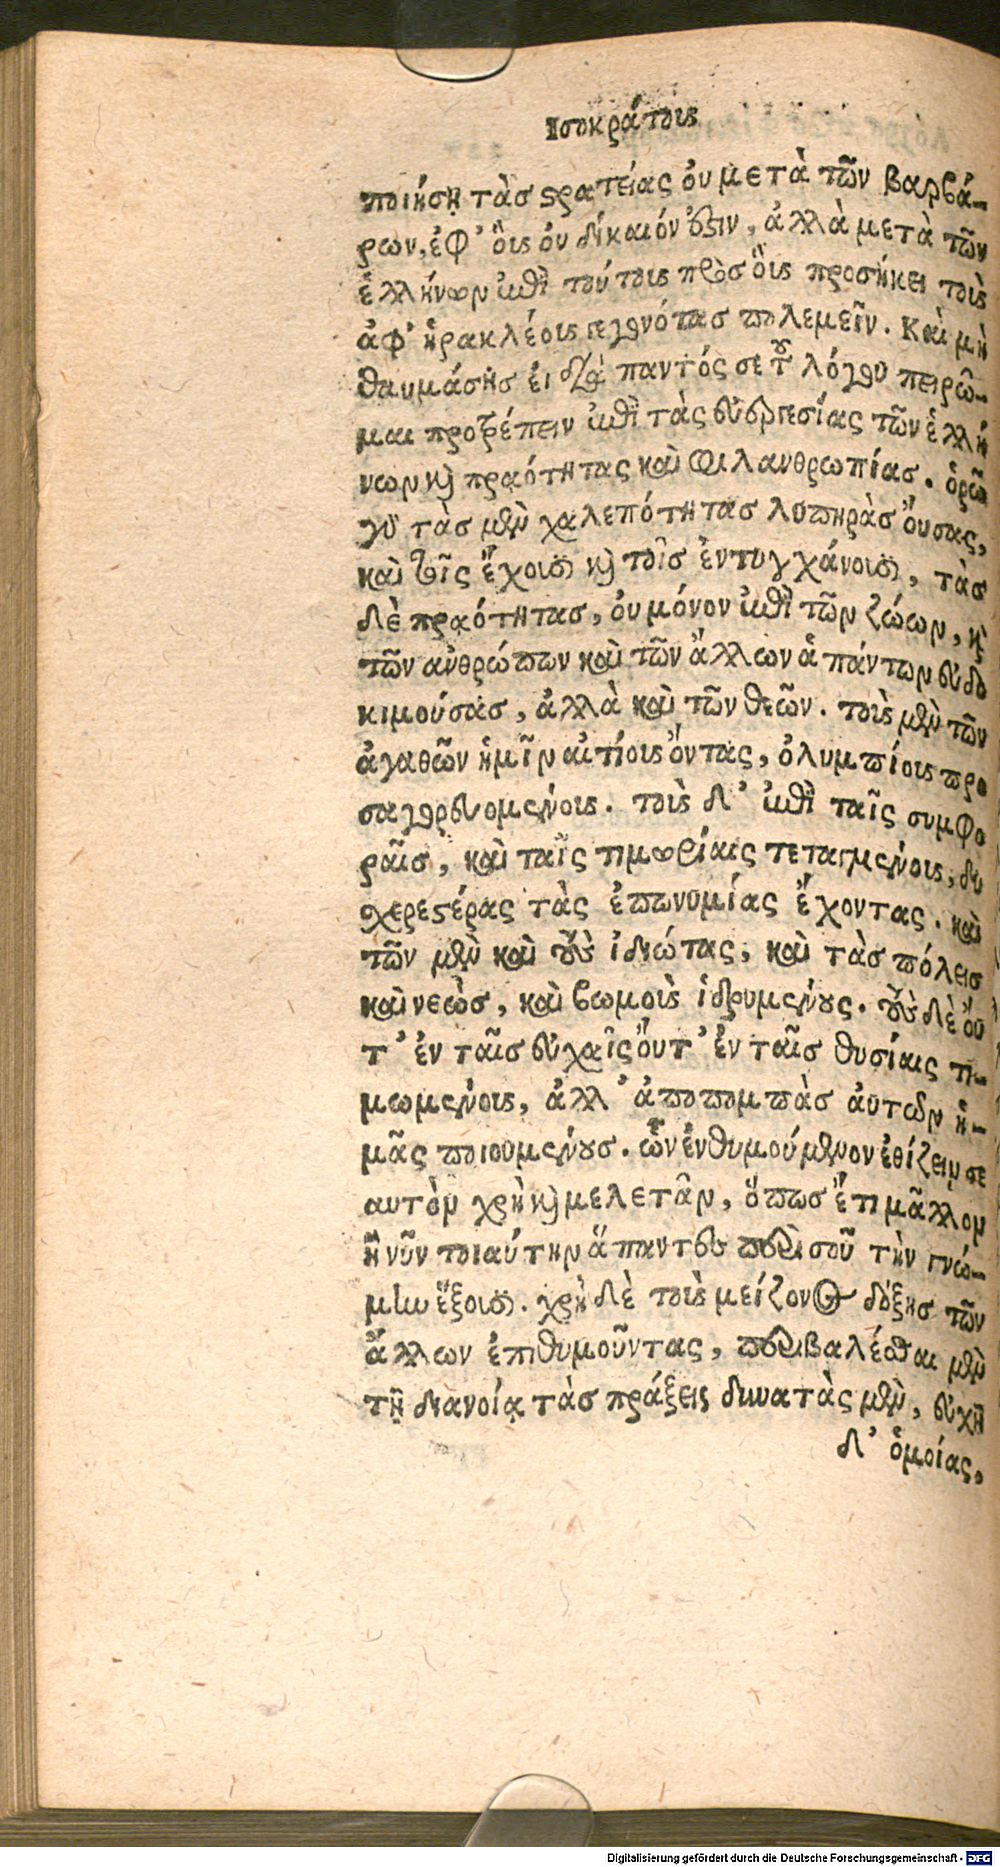 Ισοκράτους
ποιήσῃ τὰς στρατείας ὀυ μετὰ τῶν βαρβά-
ρων, ἐφ' ὃις ὀυ δίκαιόν ὄξιν, ἀλλὰ μετὰ τῶν
ἑλλήνων ἐπὶ τούτους πρὸς ὃις προσήκει τοὺς
ἀφ' ἡρακλέους γεγονότας πολεμεῖν. Καὶ μὴ
θαυμάσῃς ἐι διὰ παντός σε τοῦ λόγου πειρῶ-
μαι προτρέπειν ἐπὶ τὰς εὐεργεσίας τῶν ἑλλή
νων καὶ πραότητας καὶ φιλανθρωπίας. ὁρῶ
γὰ τὰς μὲν χαλεπότητας λυπηρὰς ὄυσας,
καὶ τοῖς ἔχουσι καὶ τοῖς ἐντυγχάνουσι, τὰς
δὲ πραότητας, ὀυ μόνον ἐπὶ τῶν ζώων, καὶ
τῶν ἀνθρώπων καὶ τῶν ἄλλων ἁπάντων εὐδο
κιμούσας, ἀλλὰ καὶ τῶν θεῶν. τοὺς μὲν τῶν
ἀγαθῶν ἡμῖν αἰτίους ὄντας, ὀλυμπίους προ
σαγορευομένους. τοὺς δ' ἐπὶ ταῖς συμφο
ραῖς, καὶ ταῖς τιμωρίαις τεταγμένους, δυ
σχερεστέρας τὰς ἐπωνυμίας ἔχοντας. καὶ
τῶν μὲν καὶ τοὺς ἰδιώτας, καὶ τὰς πόλεις
καὶ νεὼς, καὶ βωμοὺς ἱδρυμένους. τοὺς δὲ ὄυ
τ' ἐν ταῖς εὐχαῖς ὄυτ' ἐν ταῖς θυσίαις τι-
μωμένους, ἀλλ' ἀποπομπὰς ἀυτῶν ἡ-
μᾶς ποιουμένους. ὧν ἐνθυμούμενον ἐθίζειν σε
αυτὸν χρὴ καὶ μελετᾶν, ὅπως ἔτι μᾶλλον
ἢ νῦν τοιαύτην ἅπαντες περὶ σοῦ τὴν γνώ-
μην ἕξουσι. χρὴ δὲ τοὺς μείζονος δόξης τῶν
ἄλλων ἐπιθυμοῦντας, περιβαλέσθαι μὲν
τῇ διανοίᾳ τὰς πράξεις δυνατὰς μὲν, εὐχῇ
δ' ὁμοίας,
Digitalisierung gefördert durch die Deutsche Forschungsgemeinschaft - DFG